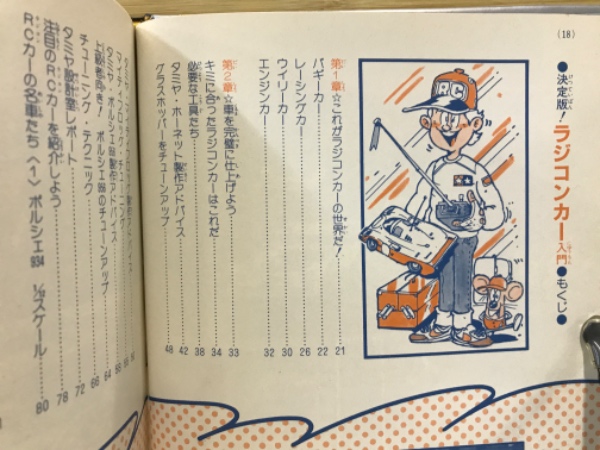 (18)
●決定版！ラジコンカー入門●もくじ●
RC
第1章☆これがラジコンカーの世界だ！……21
バギーカー……22
レーシングカー……26
ウイリーカー……30
エンジンカー……32
第2章☆車を完璧に仕上げよう……33
キミに合ったラジコンカーはこれだ……34
必要な工具たち……38
タミヤ・ホーネット製作アドバイス……42
グラスホッパーをチューンアップ……48
タミヤ・ポルシェ956製作アドバイス
上級者向き！ポルシェ956のチューンアップ
チューニング・テクニック……
タミヤ設計室レポート……72
注目のRCカーを紹介しよう……78
RCカーの名車たち〈1〉ポルシェ934 1/12スケール……80